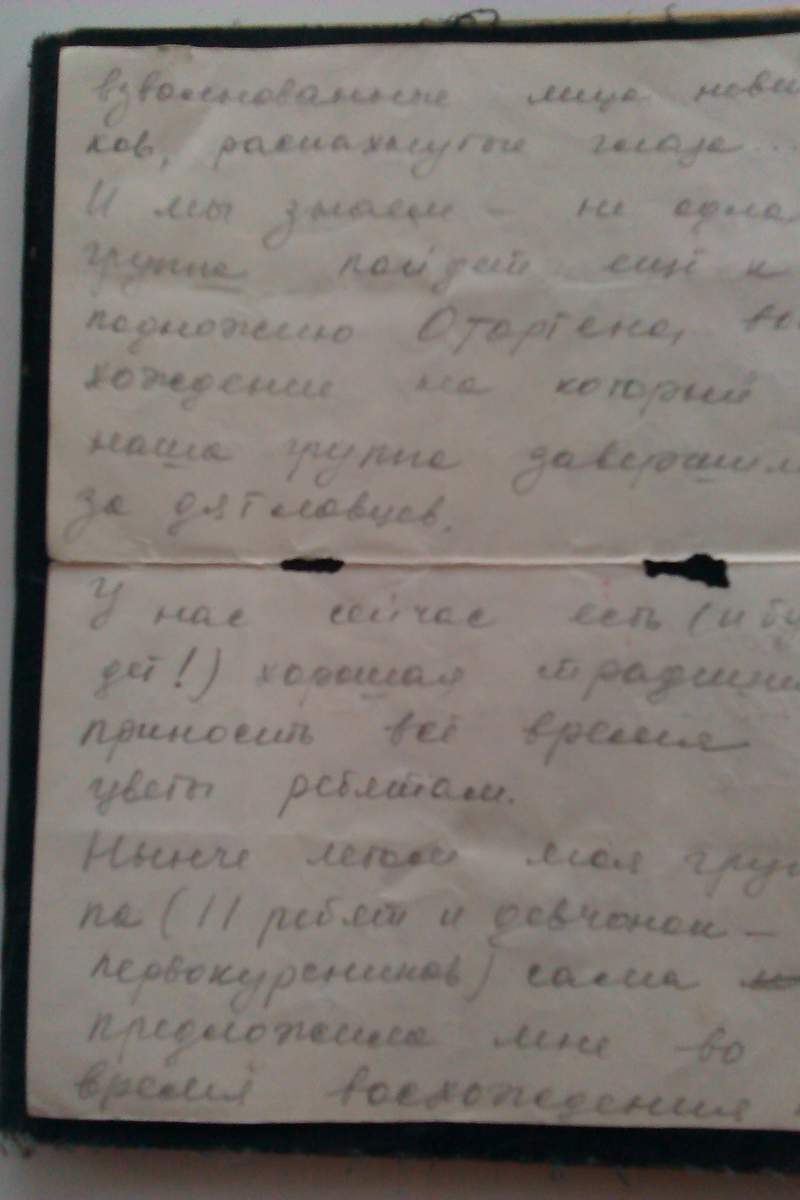 взволнованные лица нови
ков, распахнутые глаза...
И мы знаем - не одна
группа пойдет ещё к
подножию Отортена, вос
хождение на который
наша группа завершила
за дятловцев.
У нас сейчас есть (и бу
дет!) хорошая традиция
приносить всё время
цветы ребятам.
Нынче летом моя груп
па (11 ребят и девчонок -
первокурсников) сама
предложила мне во
время восхождения